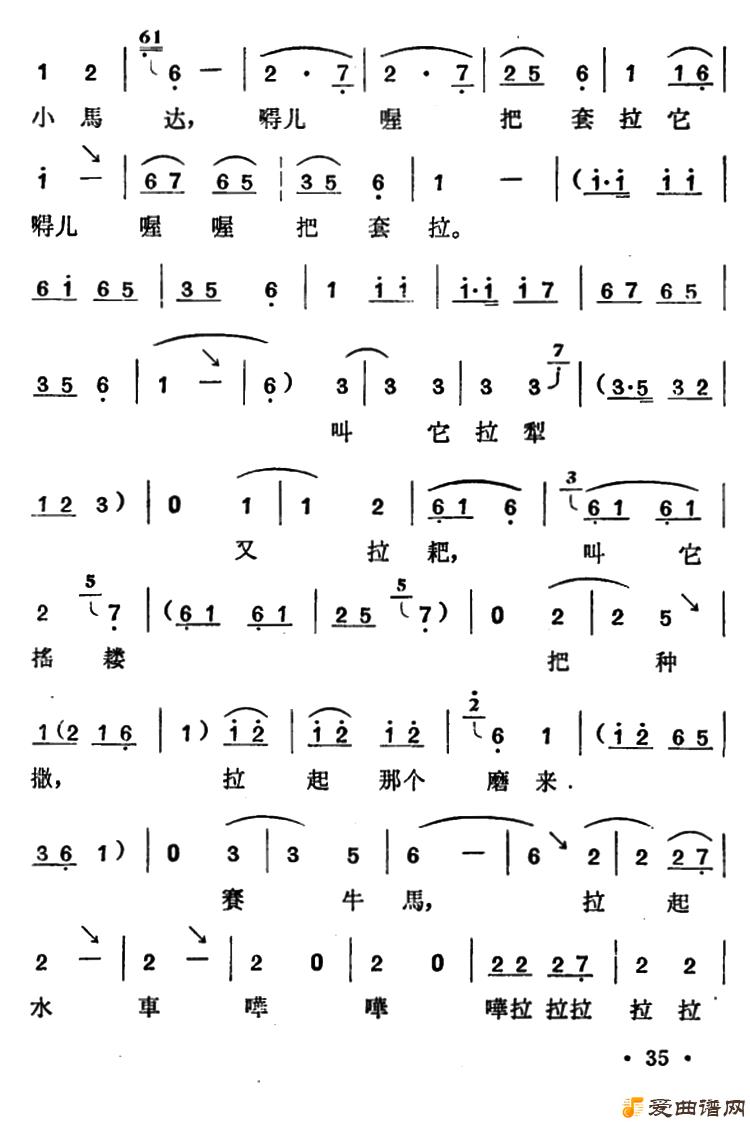 1 2 | 61 6 — | 2 · 7 | 2 · 7 | 25 6 | 1 16 |
小馬 达， 嘚儿 喔 把 套 拉 它
i — | 67 65 | 35 6 | 1 — | (i·i i i |
嘚儿 喔 喔 把 套 拉。
6i 65 | 35 6 | 1 i i | i·i i7 | 67 65 |
35 6 | 1 — | 6) 3 | 3 3 | 3 3 7 | (3·5 32 |
叫 它 拉 犁
12 3) | 0 1 | 1 2 | 61 6 | 3 61 61 |
又 拉 耙， 叫 它
2 5 7 | (61 61 | 25 5 7) | 0 2 | 2 5 |
搖 耧 把 种
1(2 16 | 1) i2 | i2 i2 | 2 6 1 | (i2 65 |
撒， 拉 起 那个 磨 来．
36 1) | 0 3 | 3 5 | 6 — | 6 2 | 2 27 |
賽 牛 馬， 拉 起
2 — | 2 — | 2 0 | 2 0 | 22 27 | 2 2 |
水 車 嘩 嘩 嘩拉 拉拉 拉 拉
· 35 ·
爱曲谱网